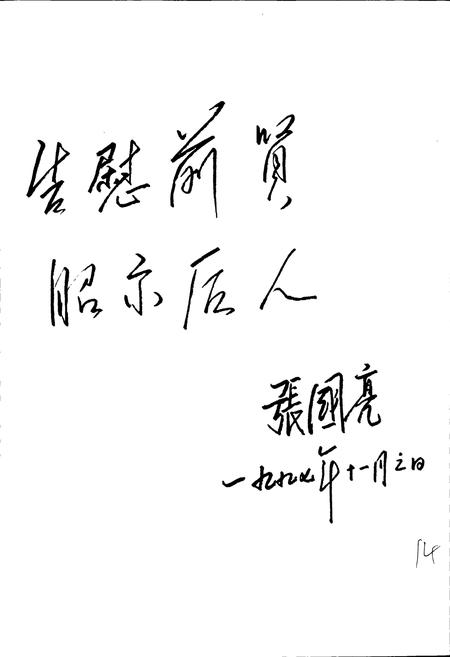 告慰前贤
昭示后人
張國亮
一九九七年十一月三日
14